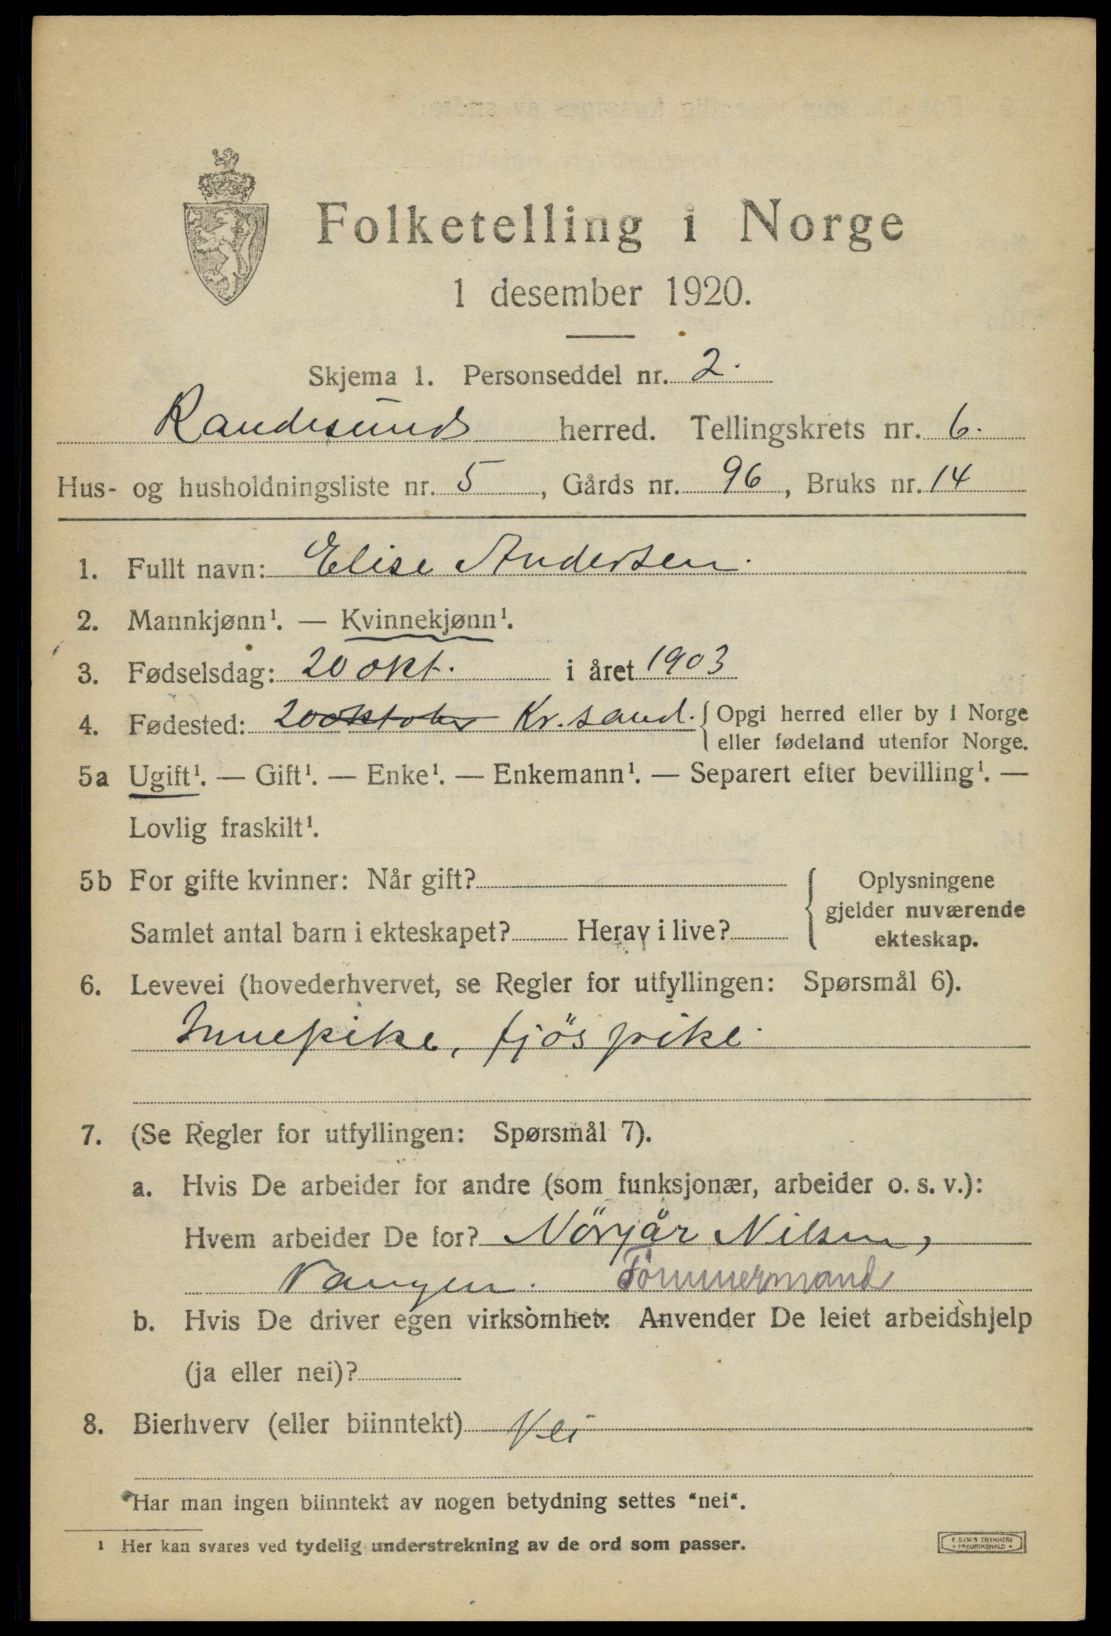 Folketelling i Norge
1 desember 1920.
Skjema 1. Personseddel nr. 2.
Randesund herred. Tellingskrets nr. 6.
Hus- og husholdningsliste nr. 5, Gårds nr. 96, Bruks nr. 14
1. Fullt navn: Elise Andersen.
2. Mannkjønn¹. — Kvinnekjønn¹.
3. Fødselsdag: 20 okt. i året 1903
4. Fødested: 20 oktober Kr.sand. { Opgi herred eller by i Norge
eller fødeland utenfor Norge.
5a Ugift¹. — Gift¹. — Enke¹. — Enkemann¹. — Separert efter bevilling¹. —
Lovlig fraskilt¹.
5b For gifte kvinner: Når gift?
Samlet antal barn i ekteskapet? Herav i live?
{ Oplysningene
gjelder nuværende
ekteskap.
6. Levevei (hovederhvervet, se Regler for utfyllingen: Spørsmål 6).
Innepike, fjöspike.
7. (Se Regler for utfyllingen: Spørsmål 7).
a. Hvis De arbeider for andre (som funksjonær, arbeider o. s. v.):
Hvem arbeider De for? Nilsen,
Vangen. Tömmermand
b. Hvis De driver egen virksomhet: Anvender De leiet arbeidshjelp
(ja eller nei)?
8. Bierhverv (eller biinntekt) Nei
Har man ingen biinntekt av nogen betydning settes "nei".
¹ Her kan svares ved tydelig understrekning av de ord som passer.